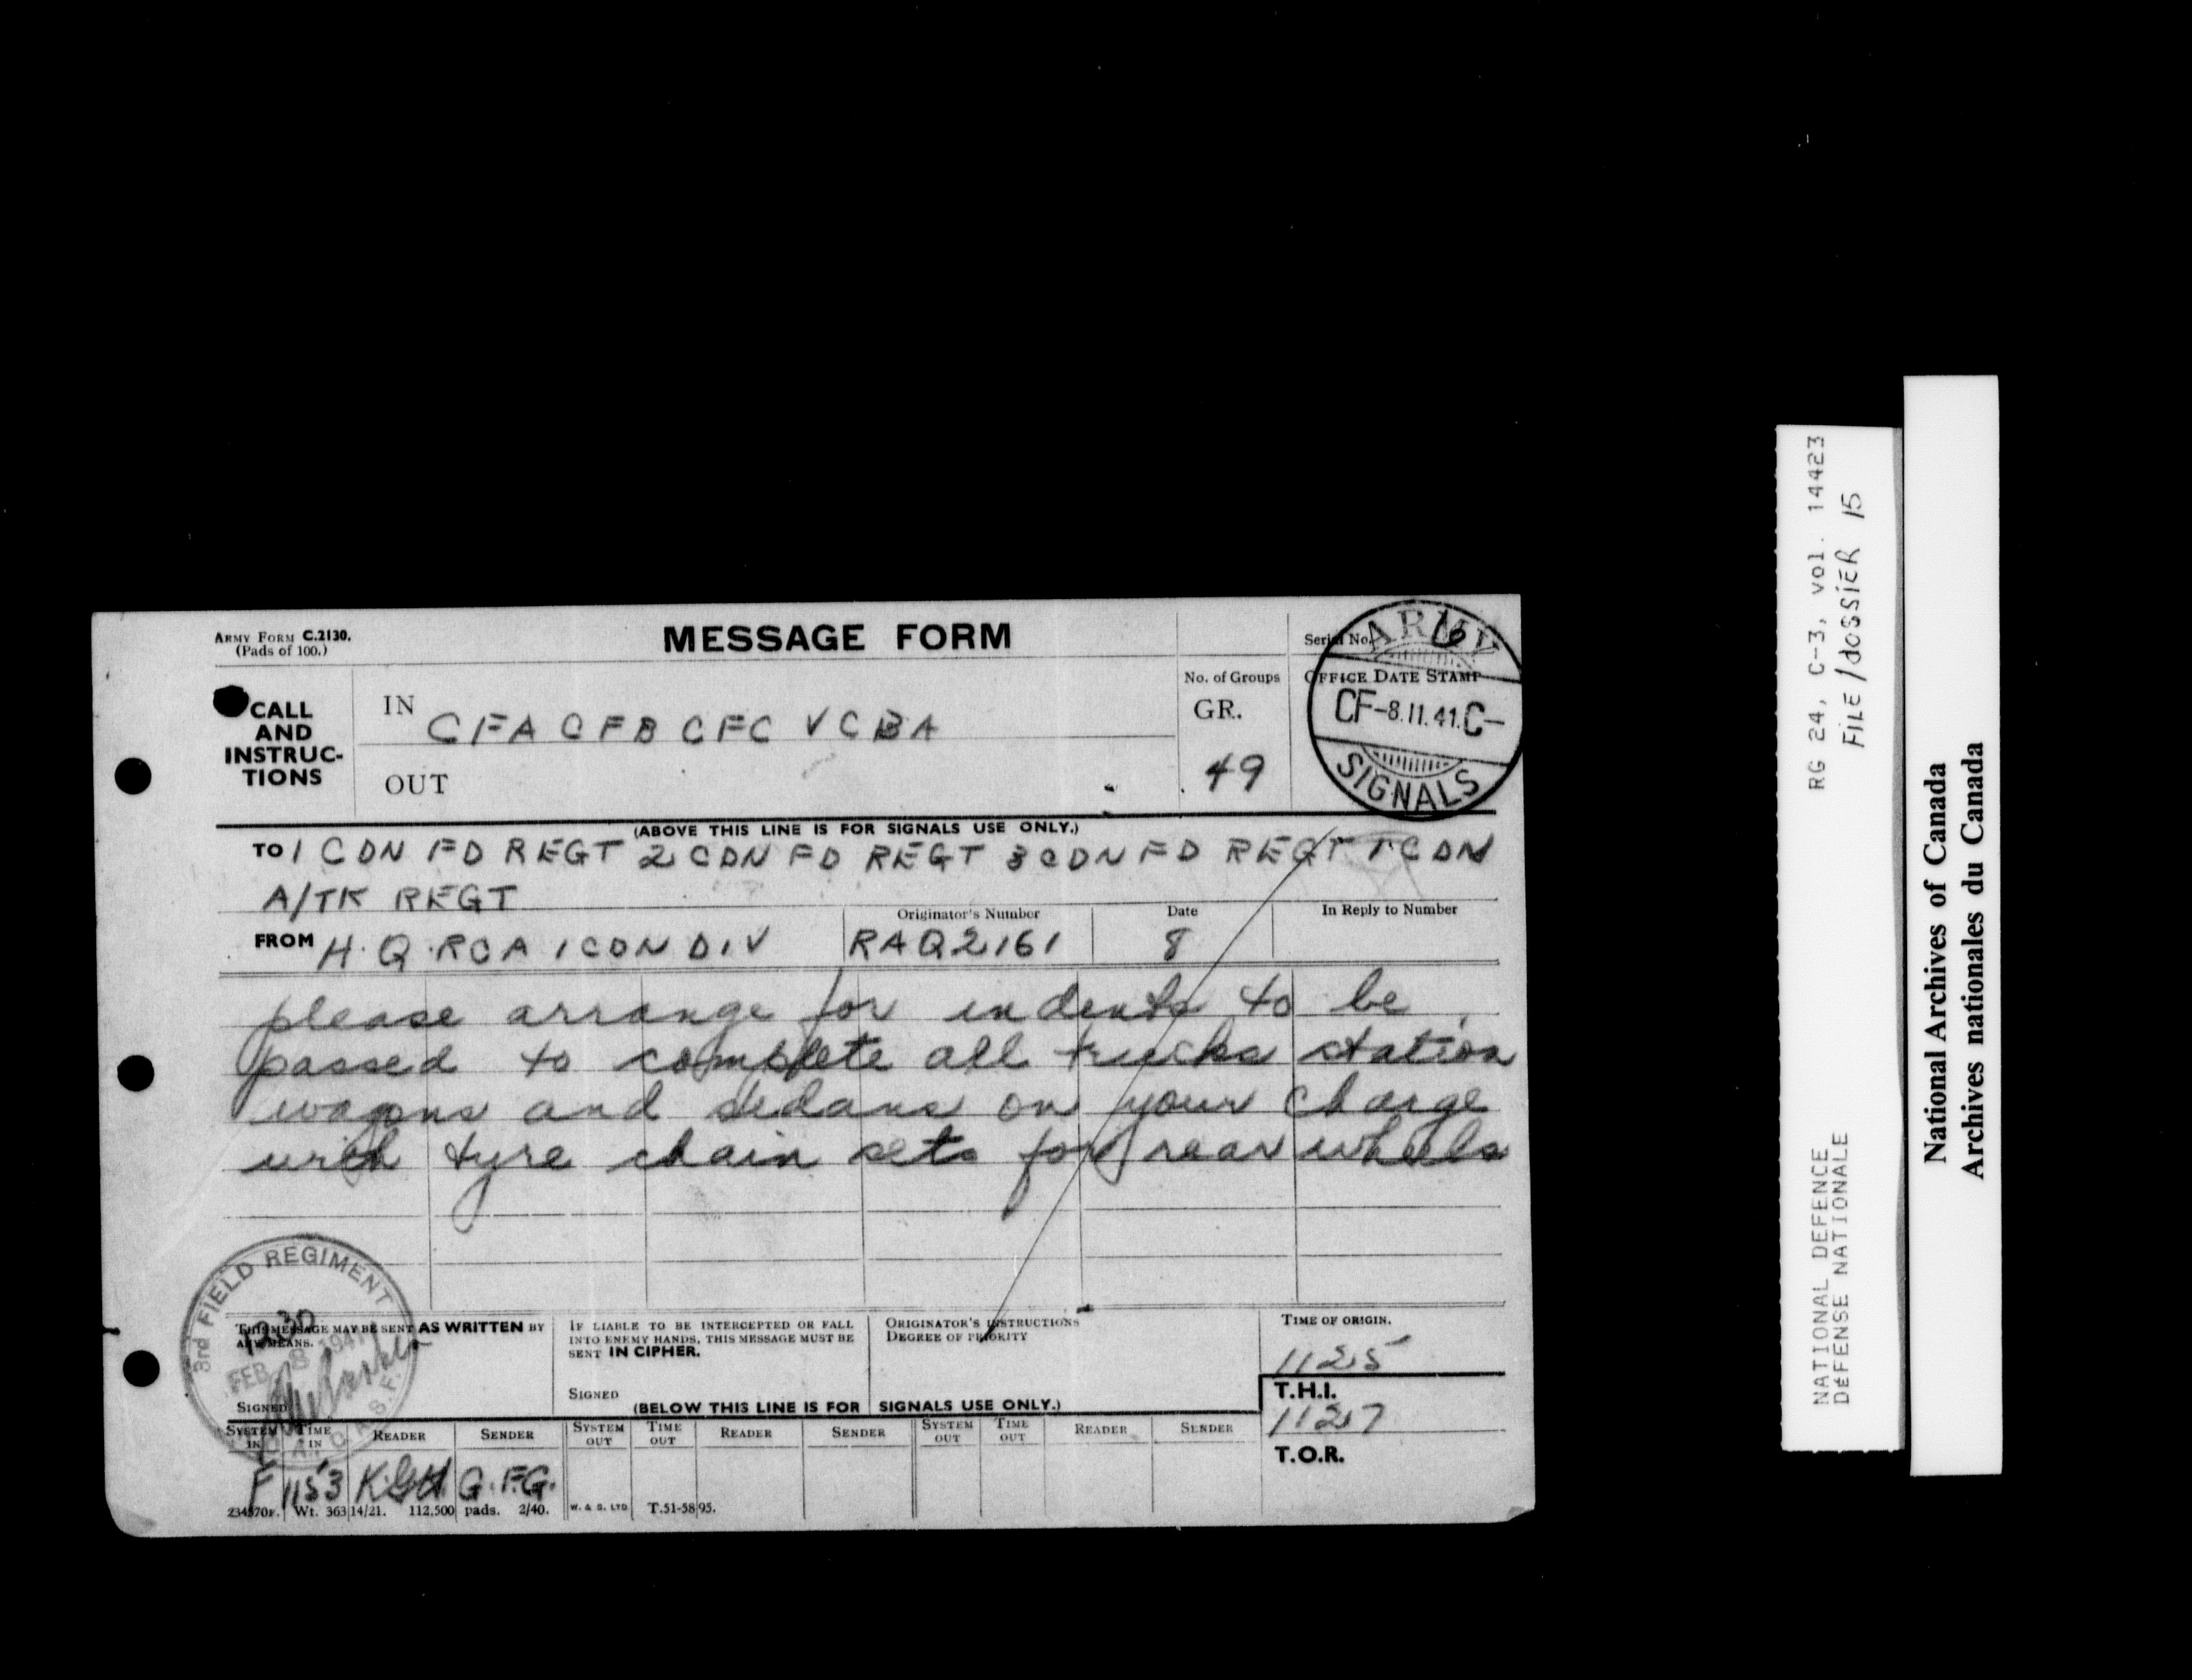 ARMY FORM C.2130.
(Pads of 100.)
MESSAGE FORM
Serial No. 16
CALL
AND
INSTRUC-
TIONS
IN CFA CFB CFC V CBA
OUT
No. of Groups
GR.
49
OFFICE DATE STAMP
ARMY
CF-8.11.41.C-
SIGNALS
(ABOVE THIS LINE IS FOR SIGNALS USE ONLY.)
TO 1 CDN FD REGT 2 CDN FD REGT 3 CDN FD REGT 1 CDN
A/TK REGT
FROM H.Q. RCA 1 CDN DIV
Originator's Number
RAQ2161
Date
8
In Reply to Number
please arrange for indents to be
passed to complete all trucks station
wagons and sedans on your charge
with tyre chain sets for rear wheels
3rd FIELD REGIMENT
1230
FEB 8 1941
THIS MESSAGE MAY BE SENT AS WRITTEN BY
ANY MEANS.
SIGNED
IF LIABLE TO BE INTERCEPTED OR FALL
INTO ENEMY HANDS, THIS MESSAGE MUST BE
SENT IN CIPHER.
SIGNED
ORIGINATOR'S INSTRUCTIONS
DEGREE OF PRIORITY
TIME OF ORIGIN.
1125
T.H.I.
1127
T.O.R.
(BELOW THIS LINE IS FOR SIGNALS USE ONLY.)
SYSTEM IN TIME IN READER SENDER SYSTEM OUT TIME OUT READER SENDER SYSTEM OUT TIME OUT READER SENDER
F 1153 KGH G.F.G.
Wt. 36314/21. 112,500 pads. 2/40. W. & S. LTD. T.51-5895.
RG 24, C-3, vol. 14423
FILE/dOSSiER 15
NATIONAL DEFENCE
DÉFENSE NATIONALE
National Archives of Canada
Archives nationales du Canada